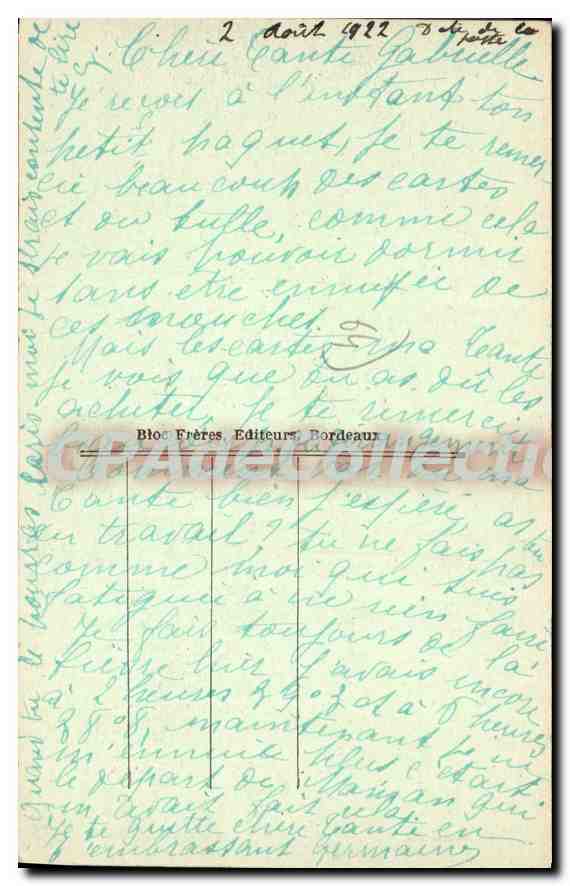 2 Août 1922 Date de la poste
Chère Tante Gabrielle
Je reçois à l'instant ton
petit paquet, je te remer
cie beaucoup des cartes
et du tulle, comme cela
je vais pouvoir dormir
sans etre ennuyée de
ces mouches.
Mais les cartes ma Tante
je vois que tu as dû les
acheter. Je te remercie
Bloc Frères, Editeurs, Bordeaux
CPAdeCollection.com
Tante bien j'espère, as tu
du travail? tu ne fais pas
comme moi qui suis
fatiguée à ne rien faire
Je fais toujours de la
fièvre hier j'avais encore
à 2 heures et à 8 heures
38°8, maintenant je ne
m'ennuie plus c'était
le départ de Maman qui
m'avait fait cela
Je te quitte chère Tante en
t'embrassant Germaine
Quand tu le pourras écris moi je serais contente de
te lire